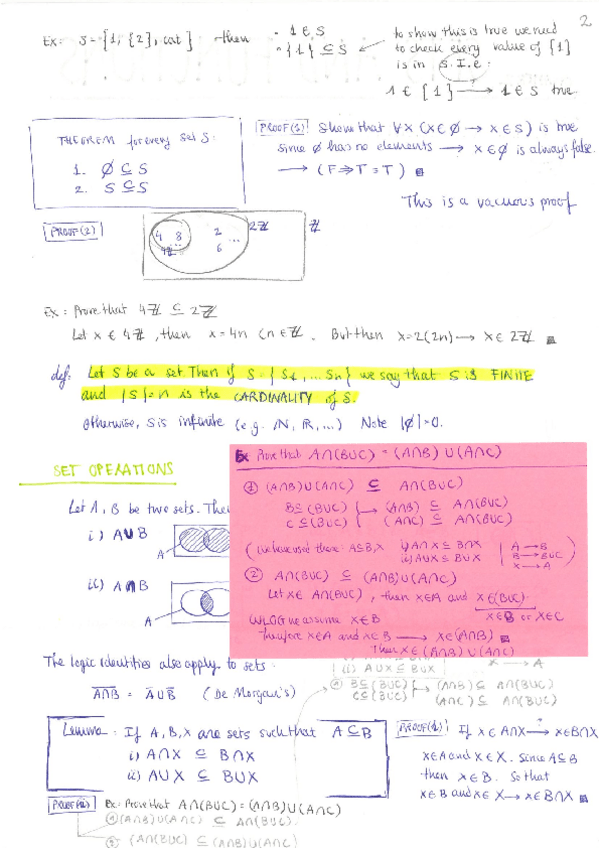 2
Ex: S = {1, {2}, cat} then · 1 ∈ S
· {1} ⊆ S
to show this is true we need
to check every value of {1}
is in S. I.e:
1 ∈ {1} → 1 ∈ S true.
THEOREM for every set S:
1. ∅ ⊆ S
2. S ⊆ S
PROOF(1) Show that ∀x (x ∈ ∅ → x ∈ S) is true
since ∅ has no elements → x ∈ ∅ is always false.
→ (F ⇒ T ≡ T) ■
This is a vacuous proof
PROOF(2)
4 8 2 ... 2ℤ ℤ
4ℤ ... 6
Ex: Prove that 4ℤ ⊆ 2ℤ
Let x ∈ 4ℤ, then x = 4n (n ∈ ℤ. But then x = 2(2n) → x ∈ 2ℤ ■
def: Let S be a set. Then if S = {S1, ... Sn} we say that S is FINITE
and |S| = n is the CARDINALITY of S.
Otherwise, S is infinite (e.g. ℕ, ℝ, ...) Note |∅| = 0.
SET OPERATIONS
Let A, B be two sets. The
i) A∪B
A
ii) A∩B
A
Ex: Prove that A∩(B∪C) = (A∩B) ∪ (A∩C)
① (A∩B)∪(A∩C) ⊆ A∩(B∪C)
B ⊆ (B∪C) → (A∩B) ⊆ A∩(B∪C)
C ⊆ (B∪C) → (A∩C) ⊆ A∩(B∪C)
(We have used there: A⊆B, X i) A∩X ⊆ B∩X
ii) A∪X ⊆ B∪X
A → B
B → B∪C
X → A
② A∩(B∪C) ⊆ (A∩B)∪(A∩C)
Let x ∈ A∩(B∪C), then x∈A and x∈(B∪C).
x∈B or x∈C
WLOG we assume x∈B
Therefore x∈A and x∈B → x∈(A∩B) ■
Then x∈(A∩B)∪(A∩C)
The logic identities also apply to sets:
(ii) A∪X ⊆ B∪X
X → A
① B⊆(B∪C) → (A∩B) ⊆ A∩(B∪C)
C⊆(B∪C) (A∩C) ⊆ A∩(B∪C)
A∩B = A∪B (De Morgan's)
Lemma: If A, B, X are sets such that A⊆B
i) A∩X ⊆ B∩X
ii) A∪X ⊆ B∪X
PROOF(1) If x ∈ A∩X → x∈B∩X
x∈A and x∈X. Since A⊆B
then x∈B. So that
x∈B and x∈X → x∈B∩X ■
PROOF(2) Ex: Prove that A∩(B∪C) = (A∩B)∪(A∩C)
① (A∩B)∪(A∩C) ⊆ A∩(B∪C).
② (A∩(B∪C) ⊆ (A∩B)∪(A∩C)